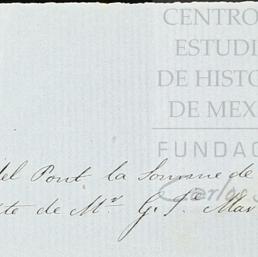 CENTRO
ESTUDI
DE HISTO
DE MEX
FUNDAC
Carlos
del Pont la Somme de
te de Mr. G. Sn. Mar